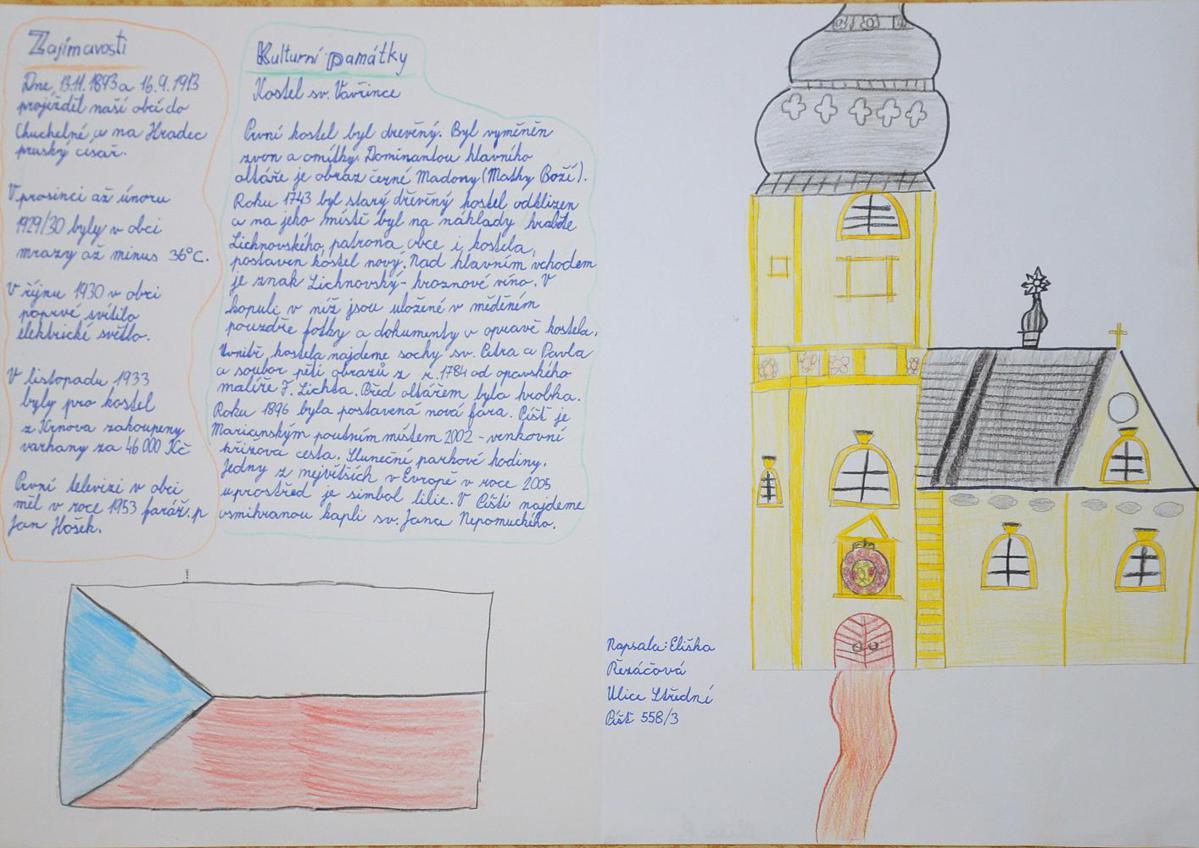 Zajímavosti
Dne 13.11.1893 a 16.9.1913
projížděl naší obcí do
Chuchelné a na Hradec
pruský císař.
V prosinci až únoru
1929/30 byly v obci
mrazy až minus 36°C.
V říjnu 1930 v obci
poprvé svítilo
elektrické světlo.
V listopadu 1933
byly pro kostel
z Krnova zakoupeny
varhany za 46 000 Kč
První televizi v obci
měl v roce 1953 farář p
Jan Hošek.
Kulturní památky
Kostel sv. Vavřince
První kostel byl dřevěný. Byl vyměněn
zvon a omítky. Dominantou hlavního
oltáře je obraz černé Madony (Matky Boží).
Roku 1743 byl starý dřevěný kostel odklizen
a na jeho místě byl na náklady hraběte
Lichnovského, patrona obce i kostela,
postaven kostel nový. Nad hlavním vchodem
je znak Lichnovský - hroznové víno. V
kopuli v níž jsou uložené v měděném
pouzdře fotky a dokumenty o opravě kostela.
Uvnitř kostela najdeme sochy sv. Petra a Pavla
a soubor pěti obrazů z r. 1784 od opavského
malíře F. Lichta. Před oltářem byla hrobka.
Roku 1896 byla postavena nová fara. Píšť je
Marianským poutním místem 2002 - venkovní
křížová cesta. Sluneční parkové hodiny.
Jedny z největších v Evropě v roce 2005
uprostřed je simbol lilie. V Píšti najdeme
osmihranou kapli sv. Jana Nepomuckého.
Napsala: Eliška
Řezáčová
Ulice Střední
Píšť 558/3